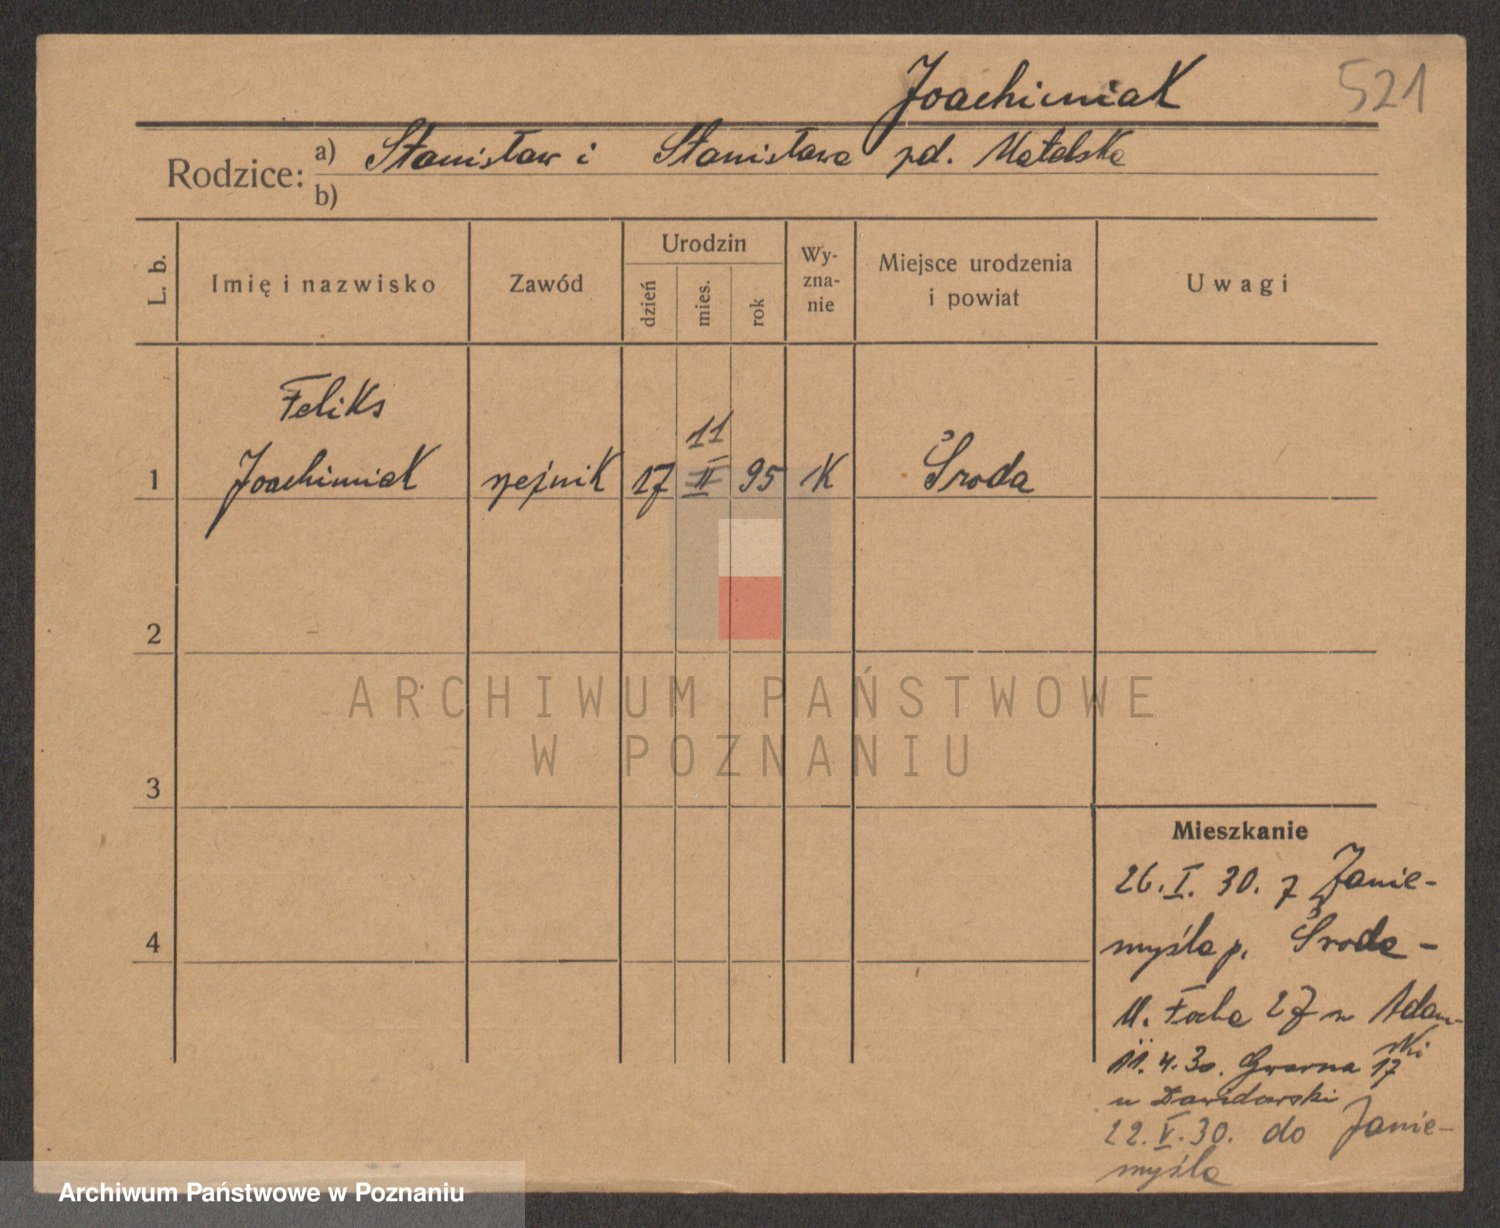 Joachimiak 521
Rodzice: a) Stanisław i Stanisława zd. Matelska
b)
L. b. Imię i nazwisko Zawód Urodzin dzień mies. rok Wy-zna-nie Miejsce urodzenia i powiat Uwagi
Feliks
11
1 Joachimiak 17 II 95 K Środa
2
ARCHIWUM PAŃSTWOWE
W POZNANIU
3
Mieszkanie
26. I. 30. z Janie-
4 myśla p. Środa -
M. Focha 27 u Adam-
ski
11. 4. 30. Gwarna 17
u Dawidowski
22. V. 30. do Janie-
myśla
Archiwum Państwowe w Poznaniu